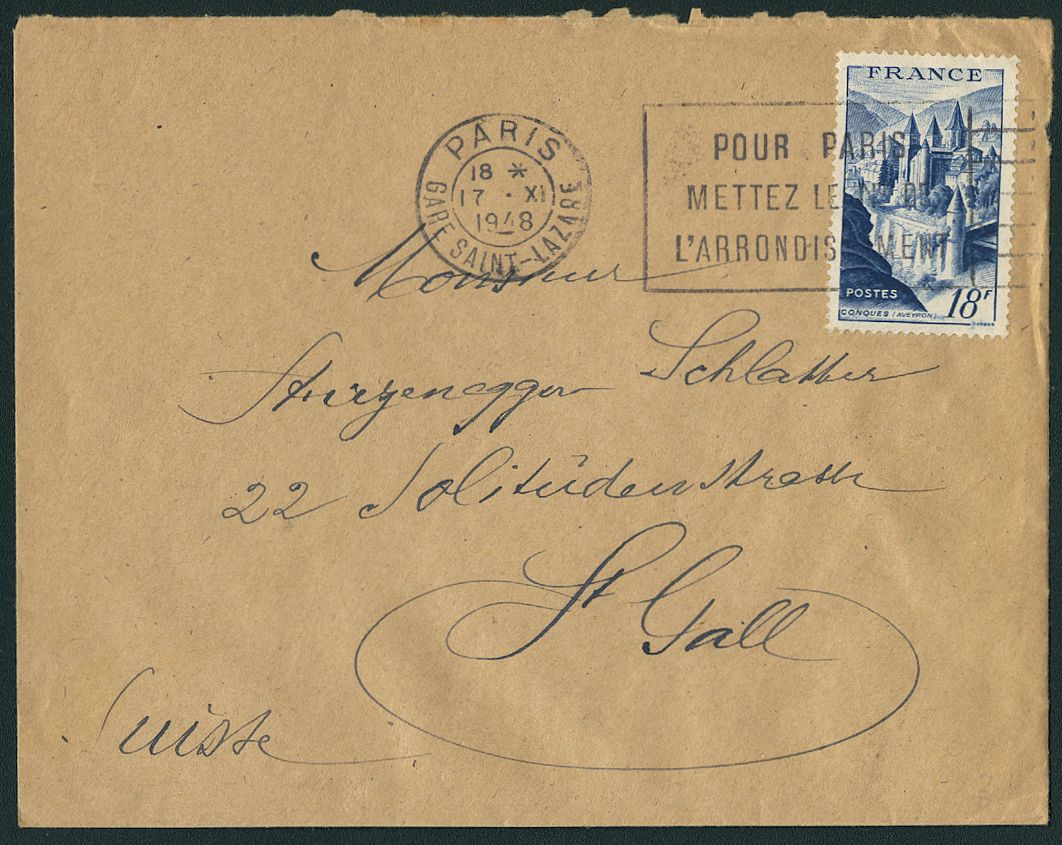 FRANCE
POSTES 18F
CONQUES (AVEYRON)
GANDON
PARIS
18 *
17 · XI
1948
GARE SAINT-LAZARE
POUR PARIS
METTEZ LE N° DE
L'ARRONDISSEMENT
Monsieur
Sturzenegger Schlatter
22 Solitüdenstrasse
St Gall
Suisse